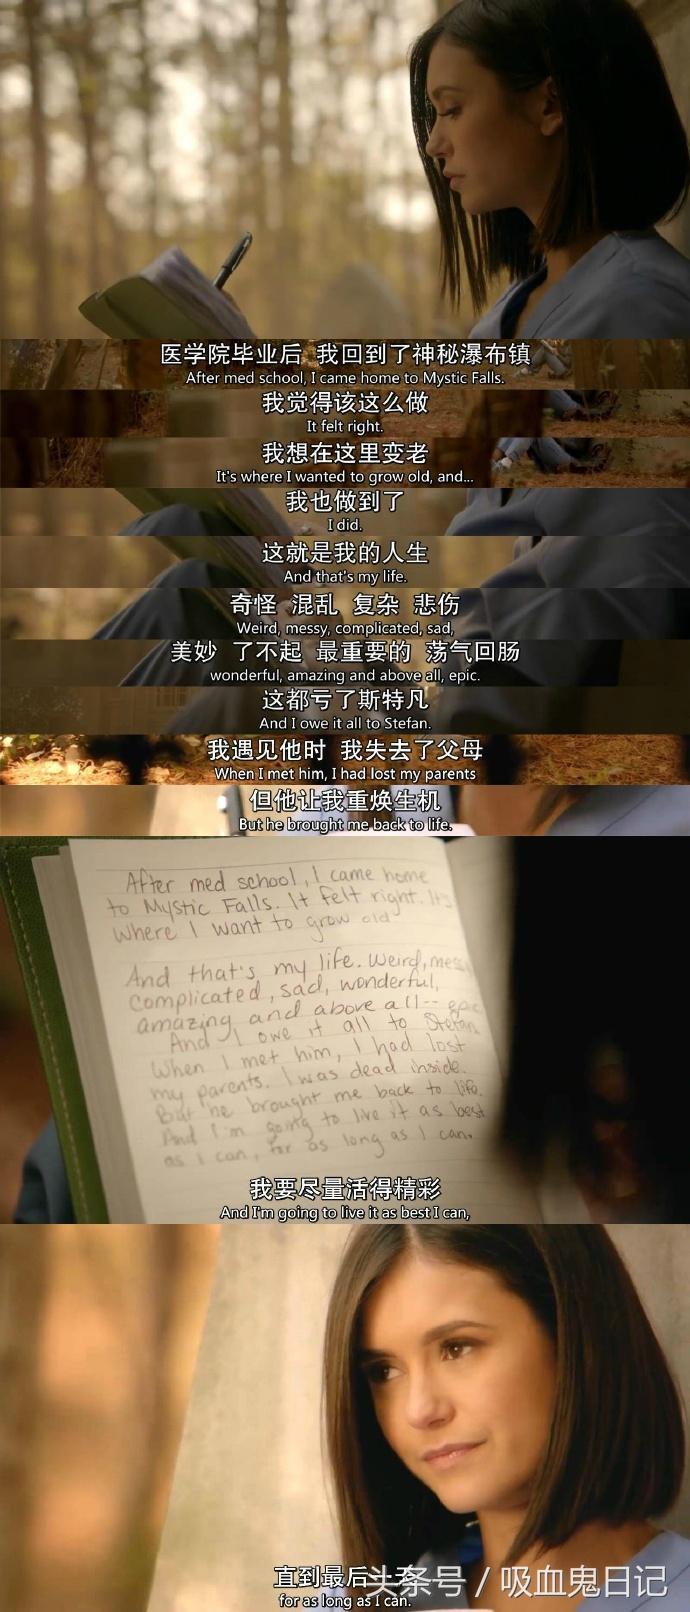 医学院毕业后 我回到了神秘瀑布镇
After med school, I came home to Mystic Falls.
我觉得该这么做
It felt right.
我想在这里变老
It's where I wanted to grow old, and...
我也做到了
I did.
这就是我的人生
And that's my life.
奇怪 混乱 复杂 悲伤
Weird, messy, complicated, sad,
美妙 了不起 最重要的 荡气回肠
wonderful, amazing and above all, epic.
这都亏了斯特凡
And I owe it all to Stefan.
我遇见他时 我失去了父母
When I met him, I had lost my parents
但他让我重焕生机
But he brought me back to life.
After med school, I came home
to Mystic Falls. It felt right. It's
where I want to grow old
And that's my life. Weird, messy
complicated, sad, wonderful,
amazing and above all-- epic
And I owe it all to Stefan
When I met him, I had lost
my parents. I was dead inside.
But he brought me back to life.
And I'm going to live it as best
as I can, for as long as I can.
我要尽量活得精彩
And I'm going to live it as best I can,
直到最后一天
for as long as I can.
头条号 / 吸血鬼日记